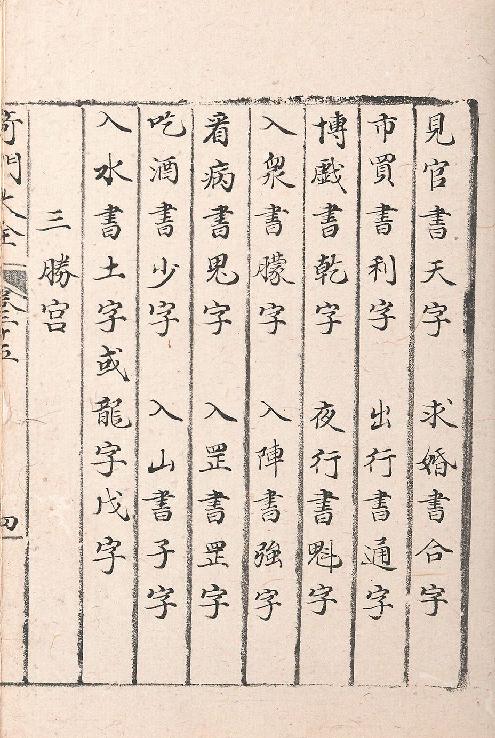 見官書天字　求婚書合字
市買書利字　出行書通字
博戲書乾字　夜行書魁字
入衆書朦字　入陣書強字
看病書鬼字　入罡書罡字
吃酒書少字　入山書子字
入水書土字或龍字戊字
三勝宮
奇門大全　卷三十五　四